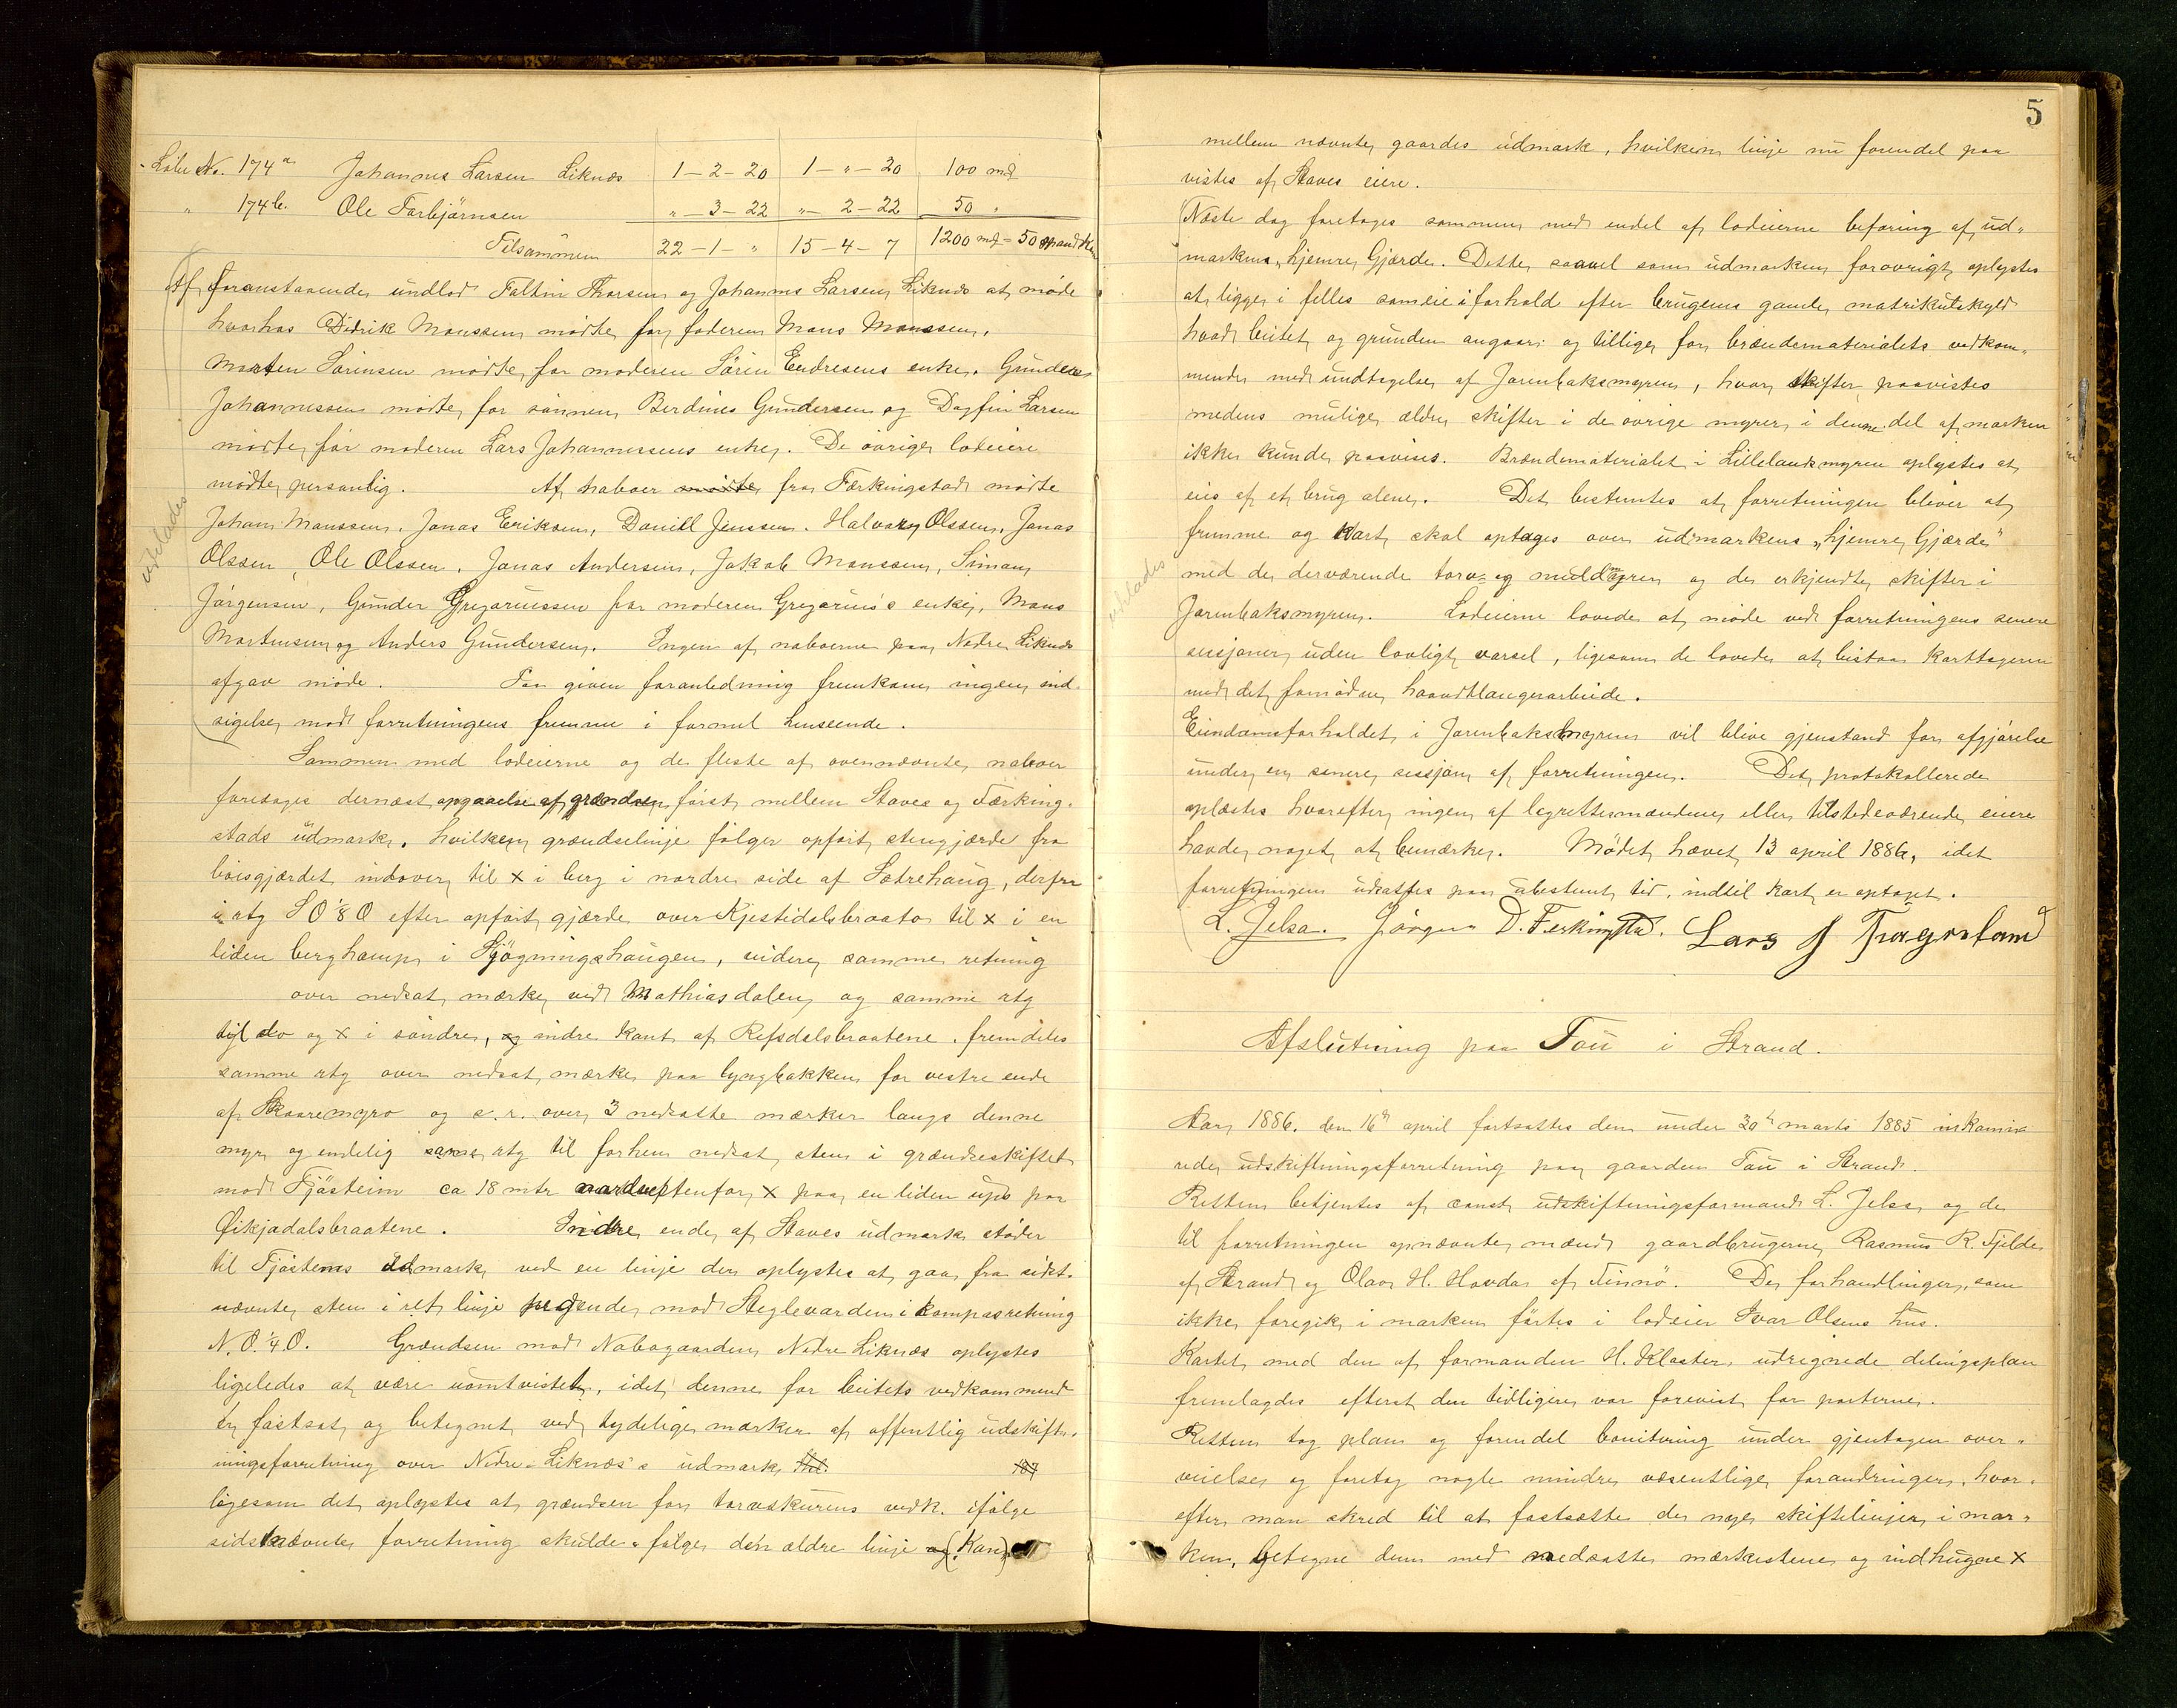 Löbe No. 174a Johannes Larsen Liknæs 1-2-20 1-"-20 100 mk
" 174b. Ole Torbjörnsen "-3-22 "-2-22 50 "
Tilsammen 22-1-" 15-4-7 1200 mk - 50
Af foranstaaende undlod Faltin Thorsen og Johannes Larsen Liknæs at møde
hvorhos Didrik Monssen mødte for faderen Mons Monssen.
Morten Sörensen mødte for moderen Sören Endresens enke. Gunder
Johannessen mødte for sönnen Berdines Gundersen og Dagfin Larsen
mødte for moderen Lars Johannessens enke. De övrige lodeiere
mødte personlig. Af naboer mødte fra Færkingstad mødte
Johan Monssen. Jonas Eriksen, Daniel Jenssen. Halvor Olssen, Jonas
Olssen, Ole Olssen. Jonas Andersen, Jakob Monssen, Simon
Jörgensen, Gunder Gregoriussen for moderen Gregorius's enke, Mons
Mortensen og Anders Gundersen. Ingen af naboerne paa Nedre Liknæs
afgav møde. Paa given foranledning fremkom ingen ind-
sigelse mod forretningens fremme i formel henseende.
udelades
Sammen med lodeierne og de fleste af ovennævnte naboer
foretages dernæst opgaaelse af grændsen först mellem Staves og Færking-
stads udmark, hvilken grændselinje fölger opfört stengjærde fra
böisgjærdet indover til x i berg i nordre side af Sætrehaug, derfra
i rtg S O 1/8 O efter opfört gjærde over Kjestidalsbraato til x i en
liden berghamp i Skjögningshaugen, videre samme retning
over nedsat mærke ved Mathiasdalen og samme rtg
til do og x i söndre, og indre kant af Refsdalsbraatene, fremdeles
samme rtg over nedsat mærke paa lyngbakken for vestre ende
af Skaaremyro og s. r. over 3 nedsatte mærker langs denne
myr og endelig same rtg til forhen nedsat sten i grændseskiftet
mod Fjösteim ca 18 mtr nordvestenfor x paa en liden ups paa
Öikjadalsbraatene. Indre ende af Staves udmark støder
til Fjöstems udmark ved en linje der oplystes at gaa fra sidst-
nævnte sten i ret linje pegende mod Steglevarden i kompasretning
N. O. 1/4 O. Grændsen mod Nabogaarden Nedre Liknæs oplystes
ligeledes at være uomtvistet, idet denne for beitets vedkommend
er fastsat og betegnet ved tydelige mærker af offentlig udskift-
ningsforretning over Nedre Liknæs's udmark 187
ligesom det oplystes at grændsen for torvskurens vedk. ifölge
sidstnævnte forretning skulde fölge den ældre linje og (Kan)
5
mellem nævnte gaardes udmark, hvilken linje nu forendel paa
vistes af Staves eiere.
Næste dag foretages sammen med endel af lodeierne befaring af ud-
markens hjemre Gjærde. Dette saavel som udmarken forövrigt oplystes
at ligge i felles sameie i forhold efter brugenes gamle matrikulskyld
hvad beitet og grunden angaar og tillige for brændematerialets vedkom-
mende med undtagelse af Jarenbaksmyren, hvor skifter paavistes
medens mulige ældre skifter i de övrige myrer i denne del af marken
ikke kunde paavises. Brændematerialet i Lillelandsmyren oplystes at
eies af et brug alene. Det bestemtes at forretningen bliver at
fremme og kart skal optages over udmarkens "hjemre Gjærde"
med de derværende torv- og muldmyrer og de erkjendte skifter i
Jarenbaksmyren. Lodeierne lovede at møde ved forretningens senere
sessjoner uden lovligt varsel, ligesom de lovede at bistaa karttageren
med det fornödne haandtlangerarbeide.
udelades
Eiendomsforholdet i Jarenbaksmyren vil blive gjenstand for afgjörelse
under en senere sessjon af forretningen. Det protokollerede
oplæstes hvorefter ingen af lagrettesmændene eller tilstedeværende eiere
havde noget at bemærke. Mødet hævet 13 april 1886, idet
forretningen udsattes paa ubestemt tid, indtil kart er optaget.
L. Jelsa. Jörgen D. Ferkingstad. Lars J
Afslutning paa Tau i Strand.
Aar 1886. den 16de april fortsattes den under 30te marts 1885 inkamine
rede udskiftningsforretning paa gaarden Tau i Strand.
Retten betjentes af const udskiftningsformand L. Jelsa og de
til forretningen opnævnte mænd gaardbrugerne Rasmus R. Fjelde
af Strand og Olaus H. Hovda af Finnö. De forhandlinger, som
ikke foregik i marken førtes i lodeier Ivar Olsens hus.
Kartet med den af formanden H. Kloster udregnede delingsplan
fremlagdes efterat den tidligere var forevist for parterne.
Retten tog plan og forendel bonitering under gjentagen over-
veielse og foretog nogle mindre væsentlige forandringer, hvor-
efter man skred til at fastsætte de nye skiftelinjer i mar-
ken, betegne dem med nedsatte mærkestene og indhugne x